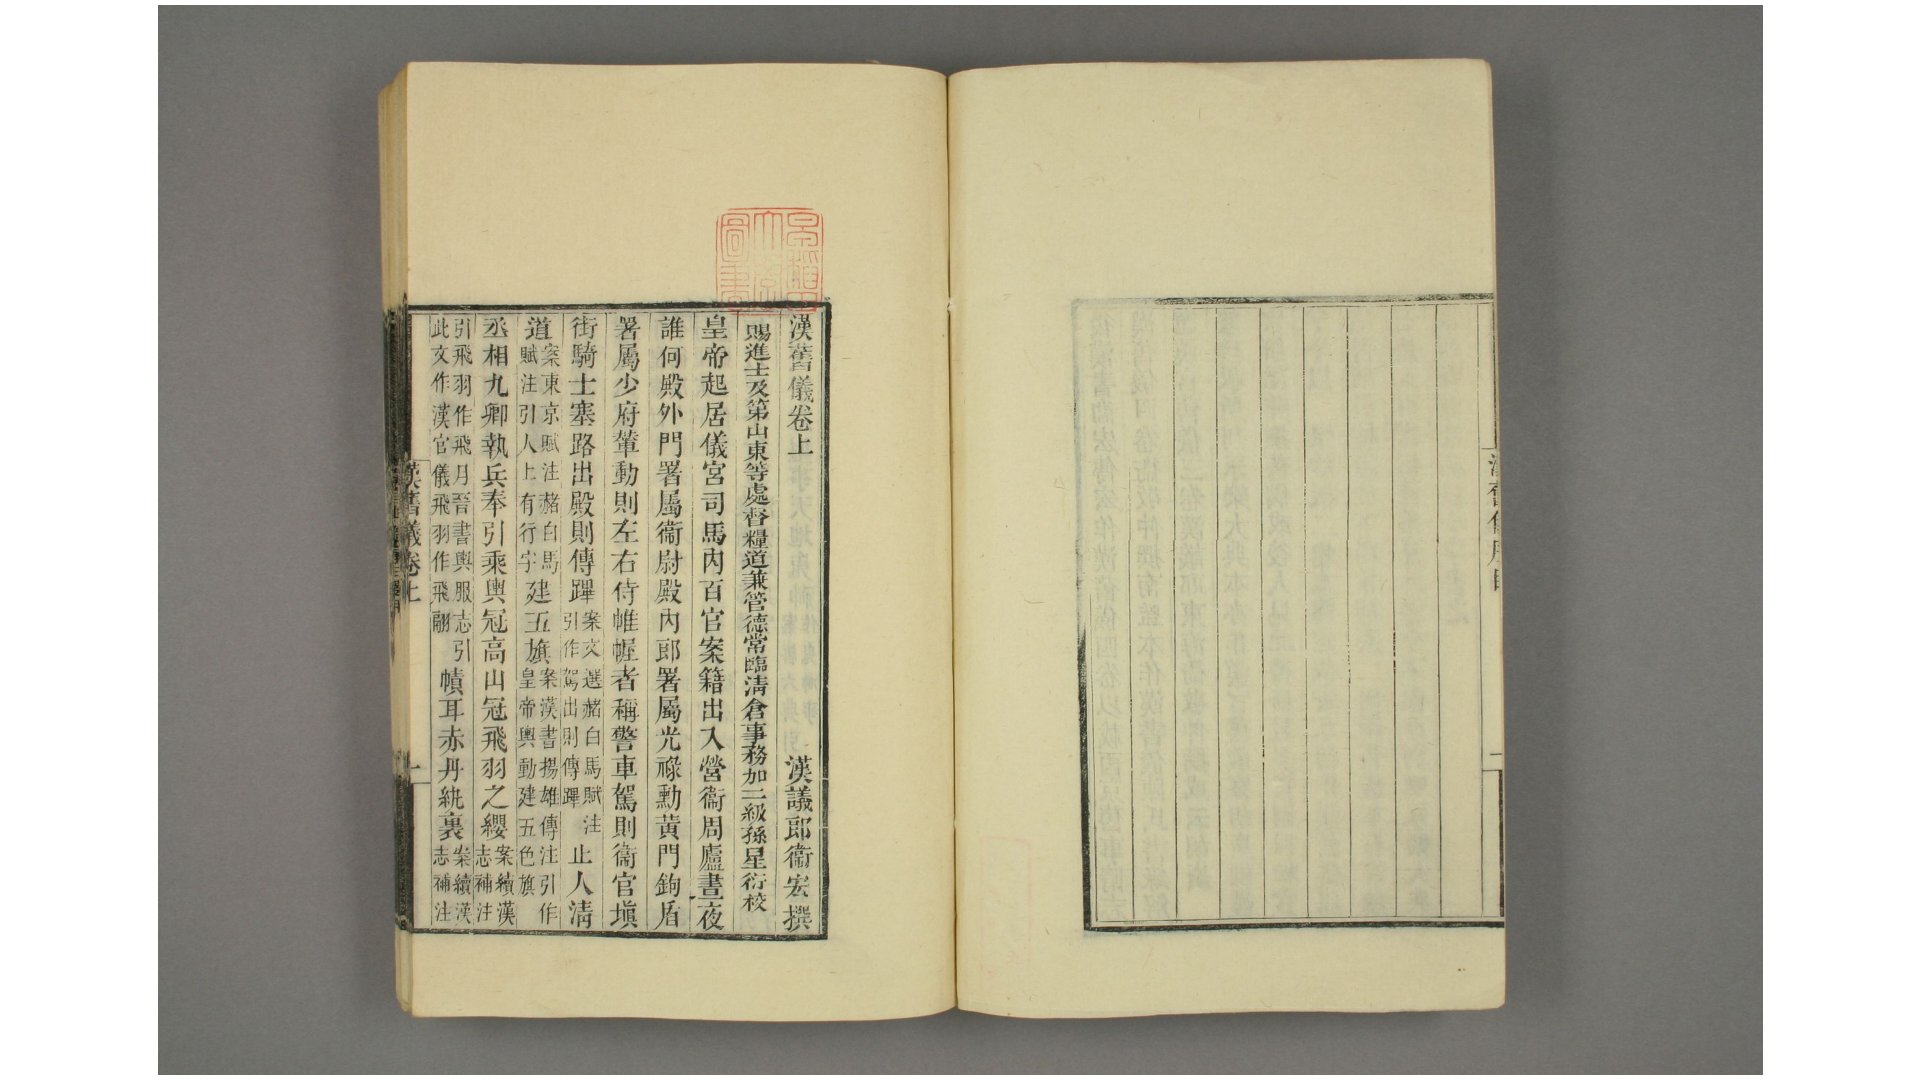 漢舊儀序目
一
漢舊儀卷上 漢議郎衞宏撰
賜進士及第山東等處督糧道兼管德常臨清倉事務加二級孫星衍校
皇帝起居儀宮司馬內百官案籍出入營衞周廬晝夜
誰何殿外門署屬衞尉殿內郎署屬光祿勳黃門鉤盾
署屬少府輦動則左右侍帷幄者稱警車駕則衞官塡
街騎士塞路出殿則傳蹕案文選赭白馬賦注引作駕出則傳蹕止人清
道案東京賦注赭白馬賦注引人上有行字建五旗案漢書揚雄傳注引作皇帝輿動建五色旗
丞相九卿執兵奉引乘輿冠高山冠飛羽之纓案續漢志補注
引飛羽作飛月晉書輿服志引此文作漢官儀飛羽作飛翮幘耳赤丹紈裏案續漢志補注
漢舊儀卷上
一